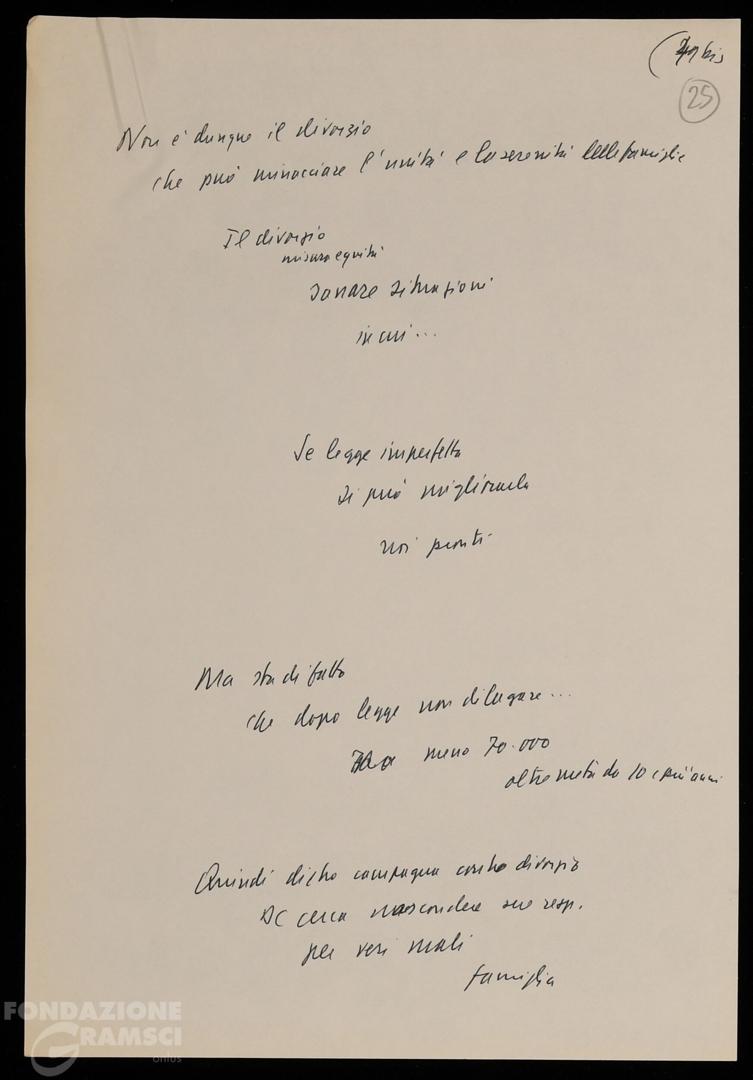 bis
25
Non è dunque il divorzio
che può minacciare l'unità e la serenità delle famiglie
Il divorzio
misura equità
sanare situazioni
in cui...
Se legge imperfetta
si può migliorarla
noi pronti
Ma sta di fatto
che dopo legge non dilagare...
meno 70.000
oltre metà da 10 e più anni
Quindi dietro campagna contro divorzio
DC cerca nascondere sue resp.
per veri mali
famiglia
FONDAZIONE
GRAMSCI
onlus